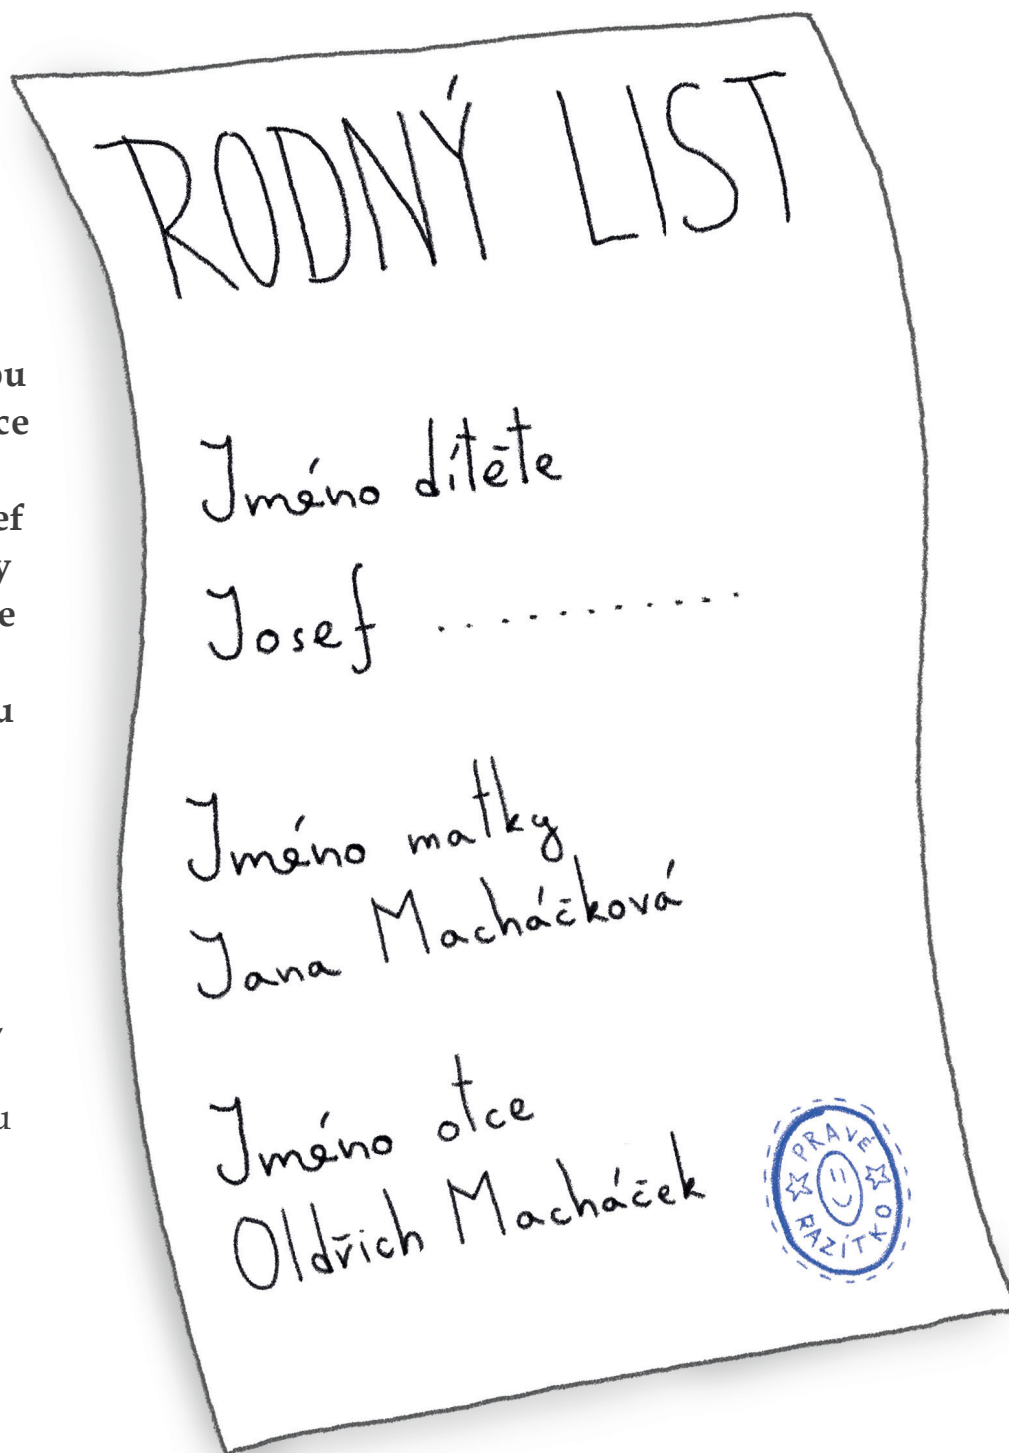 RODNÝ LIST
ou
ce
ef
y
e
u
Jméno dítěte
Josef ..........
Jméno matky
Jana Macháčková
Jméno otce
Oldřich Macháček
PRAVÉ
RAZÍTKO
y
u